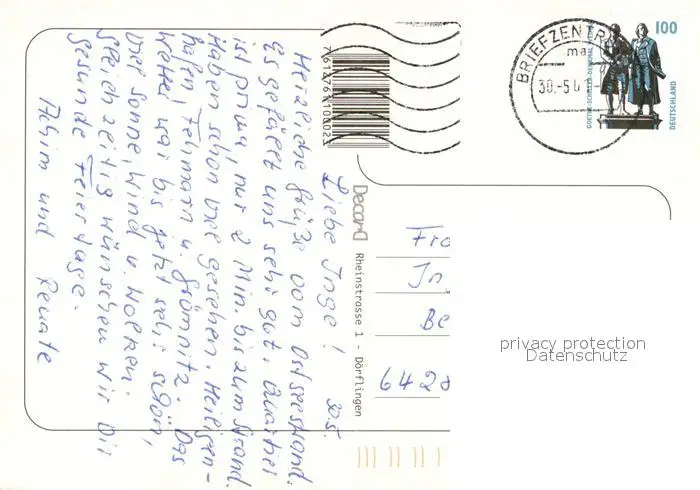 Liebe Inge! 30.5.
Herzliche Grüße vom Ostseestrand.
Es gefällt uns sehr gut. Quartier
ist prima, nur 2 Min. bis zum Strand.
Haben schon viel gesehen. Heiligen-
hafen, Fehmarn u. Grömnitz. Das
Wetter war bis jetzt sehr schön,
viel Sonne, Wind u. Wolken.
Gleichzeitig wünschen wir Dir
gesunde Feiertage.
Achim und Renate
Decor
Rheinstrasse 1 - Dörflingen
7611761100021
BRIEFZENTR
ma
30.-5
100
GOETHE-SCHILLER-DENKMAL
DEUTSCHLAND
Fra
In
Be
6428
privacy protection
Datenschutz